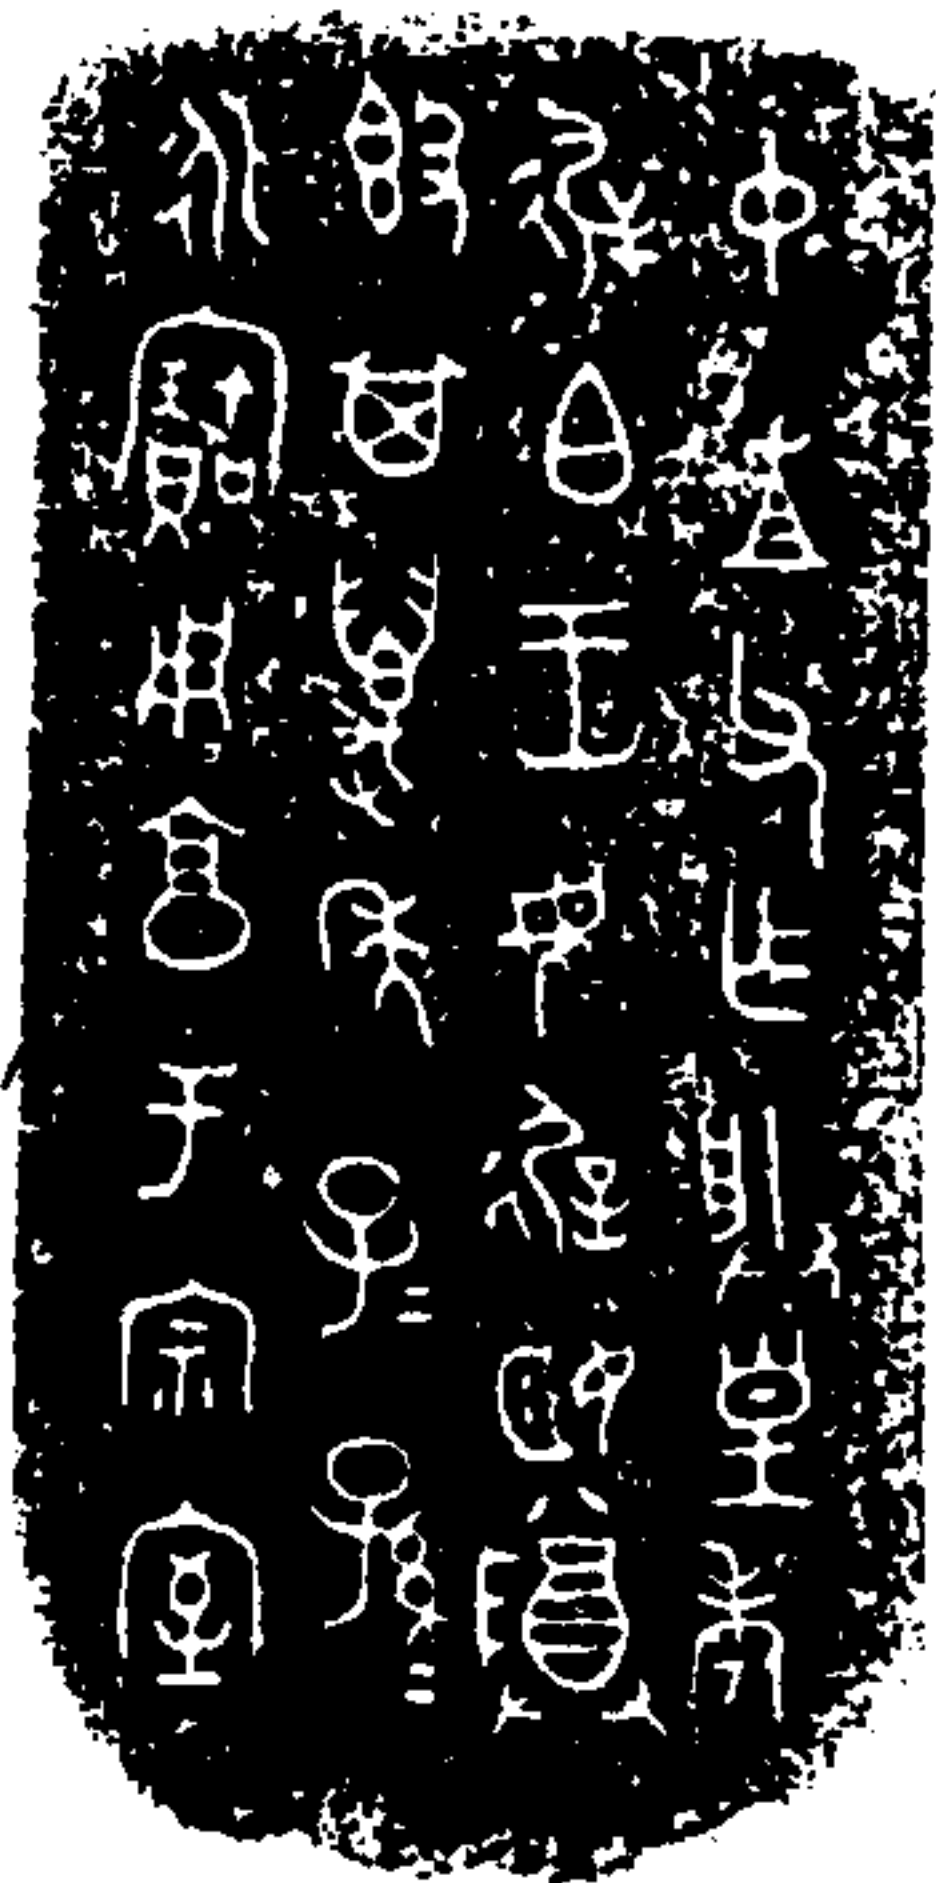 中父乍朕皇考
遟白王母遟姬𬯚
𣪘其萬年子＝孫＝
永寶用享于宗室